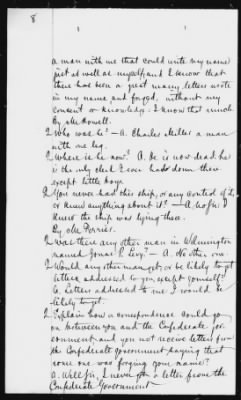 8
a man with me that could write my name
just as well as myself, and I know that
there has been a great many letters wrote
in my name and forged, without my
consent or knowledge. I know that much.
By Mr Howell.
Q Who was he? — A. Charles Miller a man
with one leg.
Q Where is he now? A. He is now dead. he
is the only clerk I ever had down there
except little boys.
Q You never had this ship, or any control of it,
or knew anything about it? — A. No sir; I
knew the ship was lying there.
By Mr Perrier.
Q Was there any other man in Wilmington
named Jonas P. Levy? — A. No other one
Q Would any other man get, or be likely to get
letters addressed to you except yourself?
A. Letters addressed to me I would be
likely to get.
Q Explain how a correspondence could go
on between you and the Confederate Gov-
ernment and you not receive letters from
the Confederate government saying that
some one was forging your name?
A. Well sir, I never got a letter from the
Confederate Government